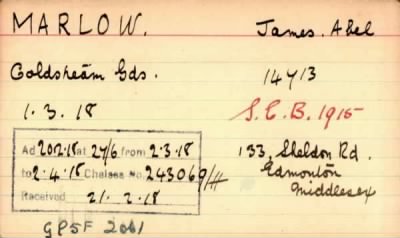 MARLOW. James. Abel
Coldsheam Gds. 14713
1. 3. 18 S.E.B. 1915
133, Sheldon Rd.
Edmonton
Middlesex
Ad 20.2.18 at 27/6 from 2.3.18
to 2.4.18 Chelsea No. 243069/H
Received 21. 2. 18
GP5F 2061